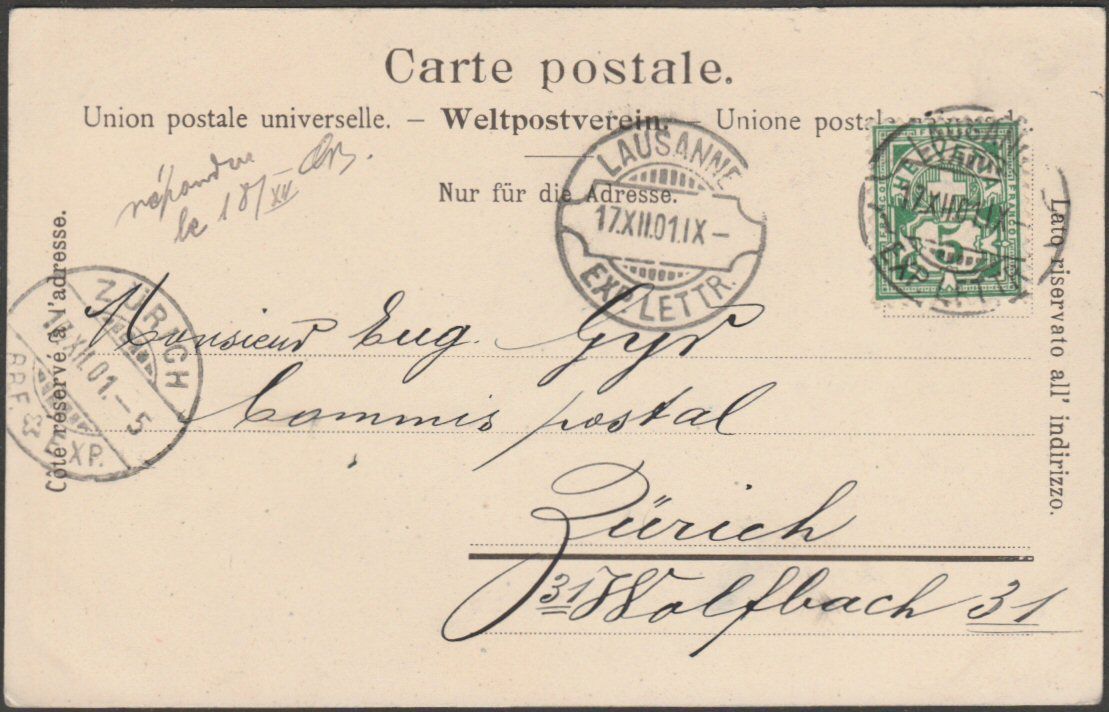 Carte postale.
Union postale universelle. – Weltpostverein. – Unione postale
Nur für die Adresse.
répondue
le 18/XII
LAUSANNE
17.XII.01.IX –
EXP. LETTR.
17.XII.01.IX
FRANCO
5
Côté réservé à l'adresse.
Lato riservato all' indirizzo.
ZÜRICH
17.XII.01.–5
BRF. EXP.
Monsieur Eug. Gyr
Commis postal
Zürich
31 Wolfbach 31